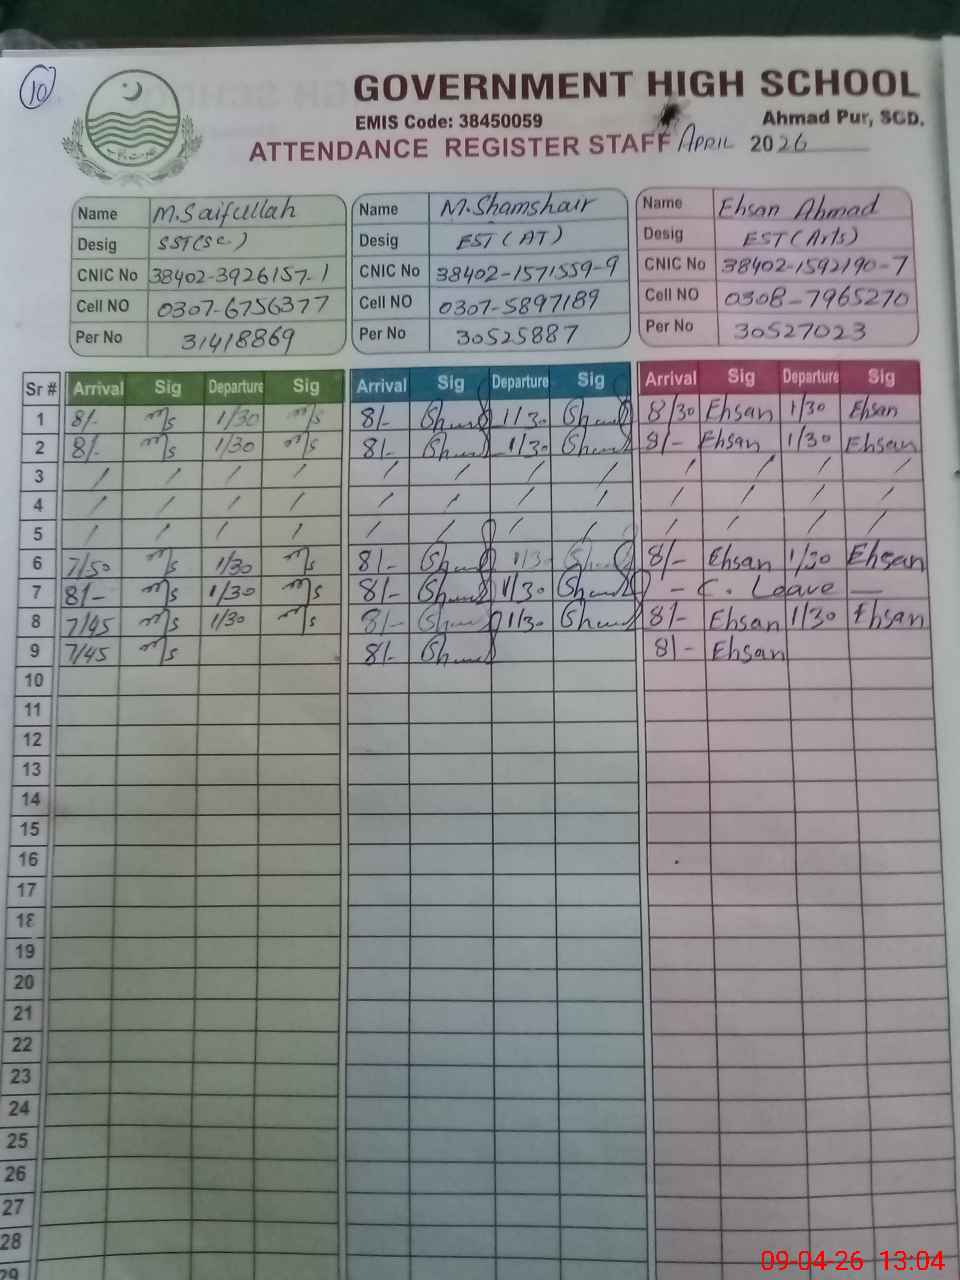 10
GOVERNMENT HIGH SCHOOL
EMIS Code: 38450059
Ahmad Pur, SGD.
ATTENDANCE REGISTER STAFF APRIL 2026
Name M.Saifullah
Desig SST(Sc.)
CNIC No 38402-3926157-1
Cell NO 0307-6756377
Per No 31418869
Name M.Shamshair
Desig EST (AT)
CNIC No 38402-1571559-9
Cell NO 0307-5897189
Per No 30525887
Name Ehsan Ahmad
Desig EST (Arts)
CNIC No 38402-1592190-7
Cell NO 0308-7965270
Per No 30527023
Sr # Arrival Sig Departure Sig Arrival Sig Departure Sig Arrival Sig Departure Sig
1 8/- m/s 1/30 m/s 8/- 1/30 8/30 Ehsan 1/30 Ehsan
2 8/- m/s 1/30 m/s 8/- 1/30 8/- Ehsan 1/30 Ehsan
3 / / / / / / / / / / / /
4 / / / / / / / / / / / /
5 / / / / / / / / / / / /
6 7/50 m/s 1/30 m/s 8/- 1/30 8/- Ehsan 1/30 Ehsan
7 8/- m/s 1/30 m/s 8/- 1/30 - C. Leave -
8 7/45 m/s 1/30 m/s 8/- 1/30 8/- Ehsan 1/30 Ehsan
9 7/45 m/s 8/- 8/- Ehsan
10
11
12
13
14
15
16
17
18
19
20
21
22
23
24
25
26
27
28
29
09-04-26 13:04